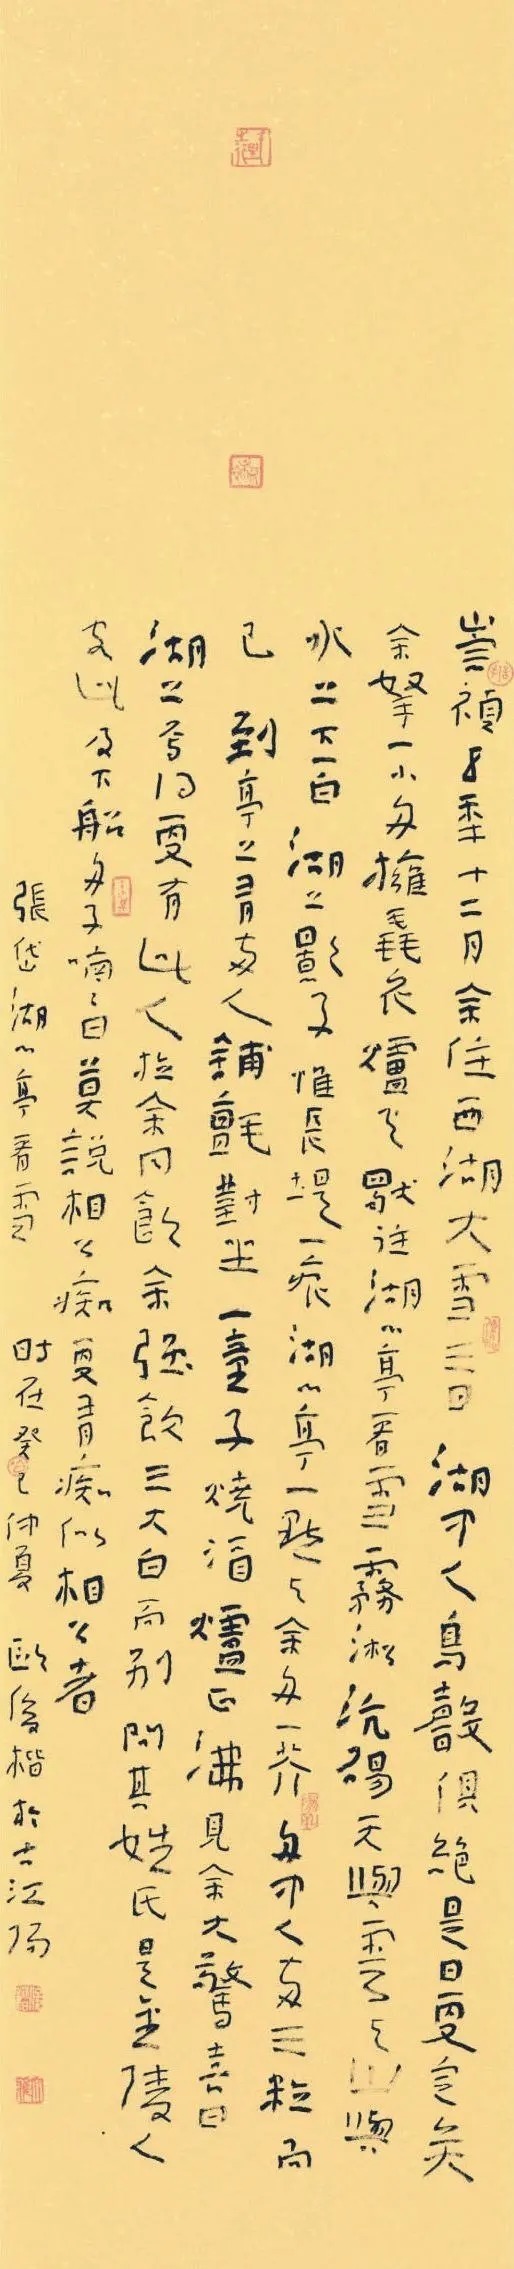 崇禎五年十二月余住西湖大雪三日湖中人鳥聲俱絕是日更定矣
余拏一小舟擁毳衣爐火獨往湖心亭看雪霧淞沆碭天與雲與山與
水上下一白湖上影子惟長堤一痕湖心亭一點與余舟一芥舟中人兩三粒而
已到亭上有兩人鋪氈對坐一童子燒酒爐正沸見余大驚喜曰
湖上焉得更有此人拉余同飲余強飲三大白而別問其姓氏是金陵人
客此及下船舟子喃喃曰莫說相公痴更有痴似相公者
張岱湖心亭看雪 時在癸巳仲夏 歐陽楷於古江陽